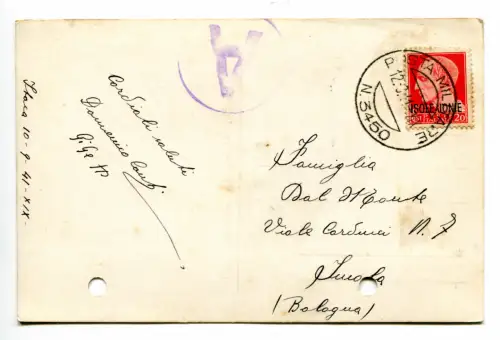 Itaca 10-9-41-XIX.
Cordiali saluti
Domenico
POSTA MILITARE
N 3450
ISOLE JONIE
20
Famiglia
Dal Monte
Viale Carducci N. 7
Imola
(Bologna)